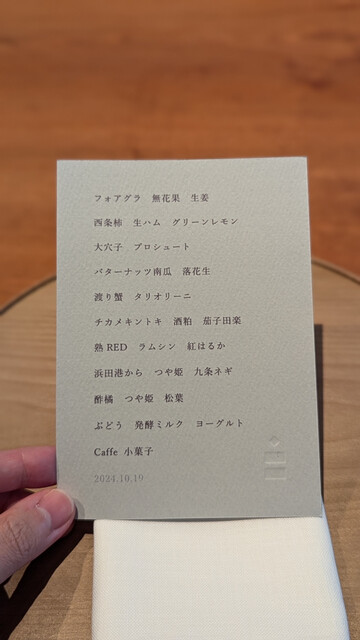 フォアグラ　無花果　生姜
西条柿　生ハム　グリーンレモン
大穴子　プロシュート
バターナッツ南瓜　落花生
渡り蟹　タリオリーニ
チカメキントキ　酒粕　茄子田楽
熟 RED　ラムシン　紅はるか
浜田港から　つや姫　九条ネギ
酢橘　つや姫　松葉
ぶどう　発酵ミルク　ヨーグルト
Caffe 小菓子
2024.10.19